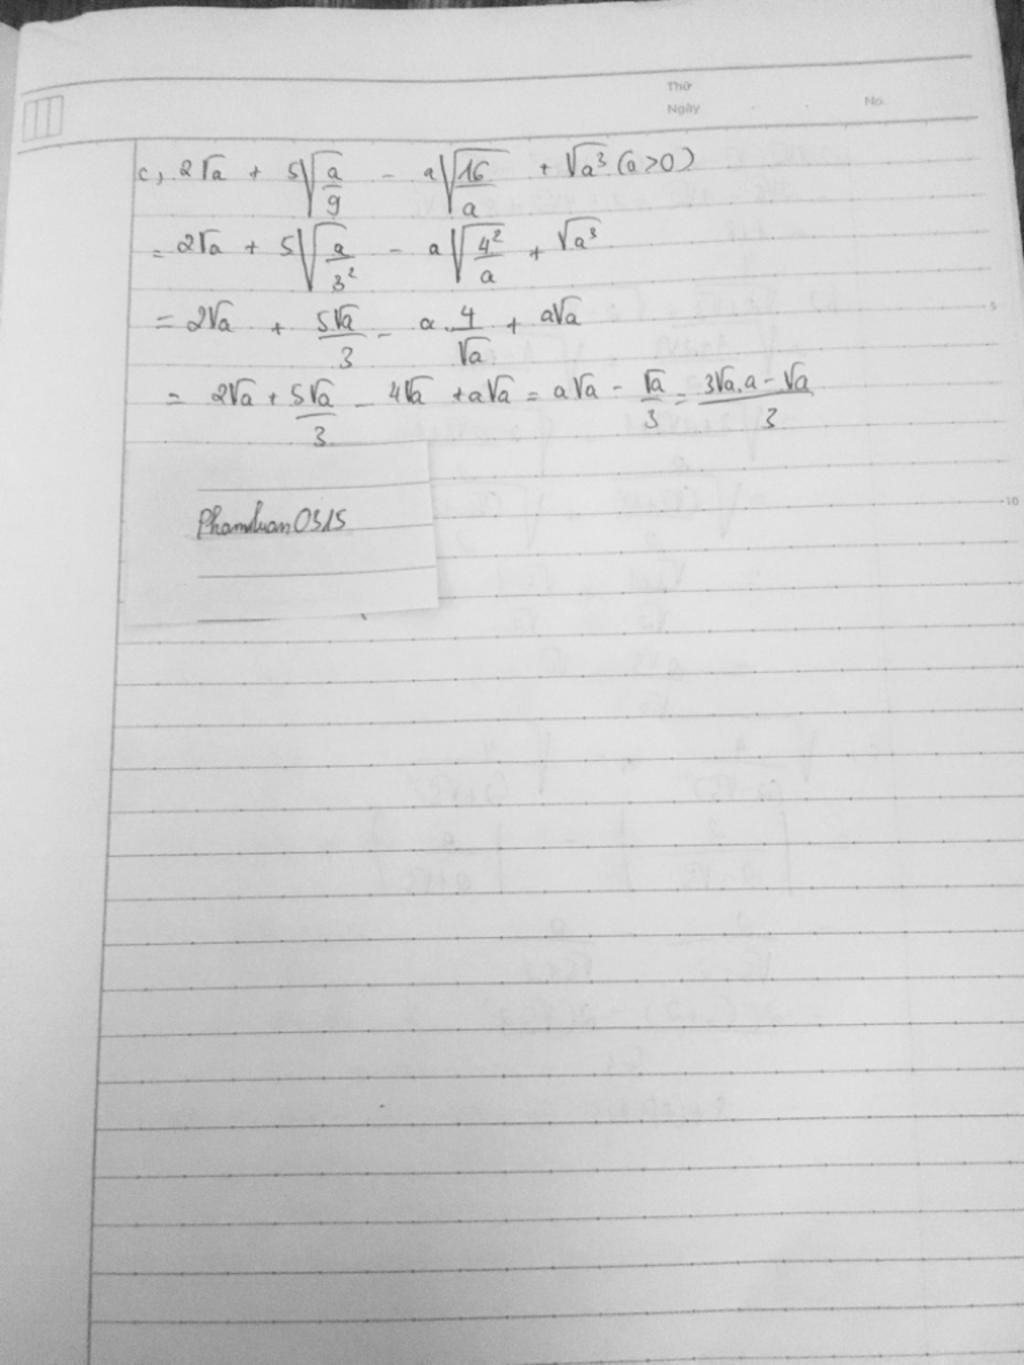 Thứ
Ngày
No.
c, 2√a + 5√(a/9) - a√(16/a) + √a³ (a>0)
= 2√a + 5√(a/3²) - a√(4²/a) + √a³
5
= 2√a + 5√a/3 - a.4/√a + a√a
= 2√a + 5√a/3 - 4√a + a√a = a√a - √a/3 = (3√a.a - √a)/3
10
Phamluan0315